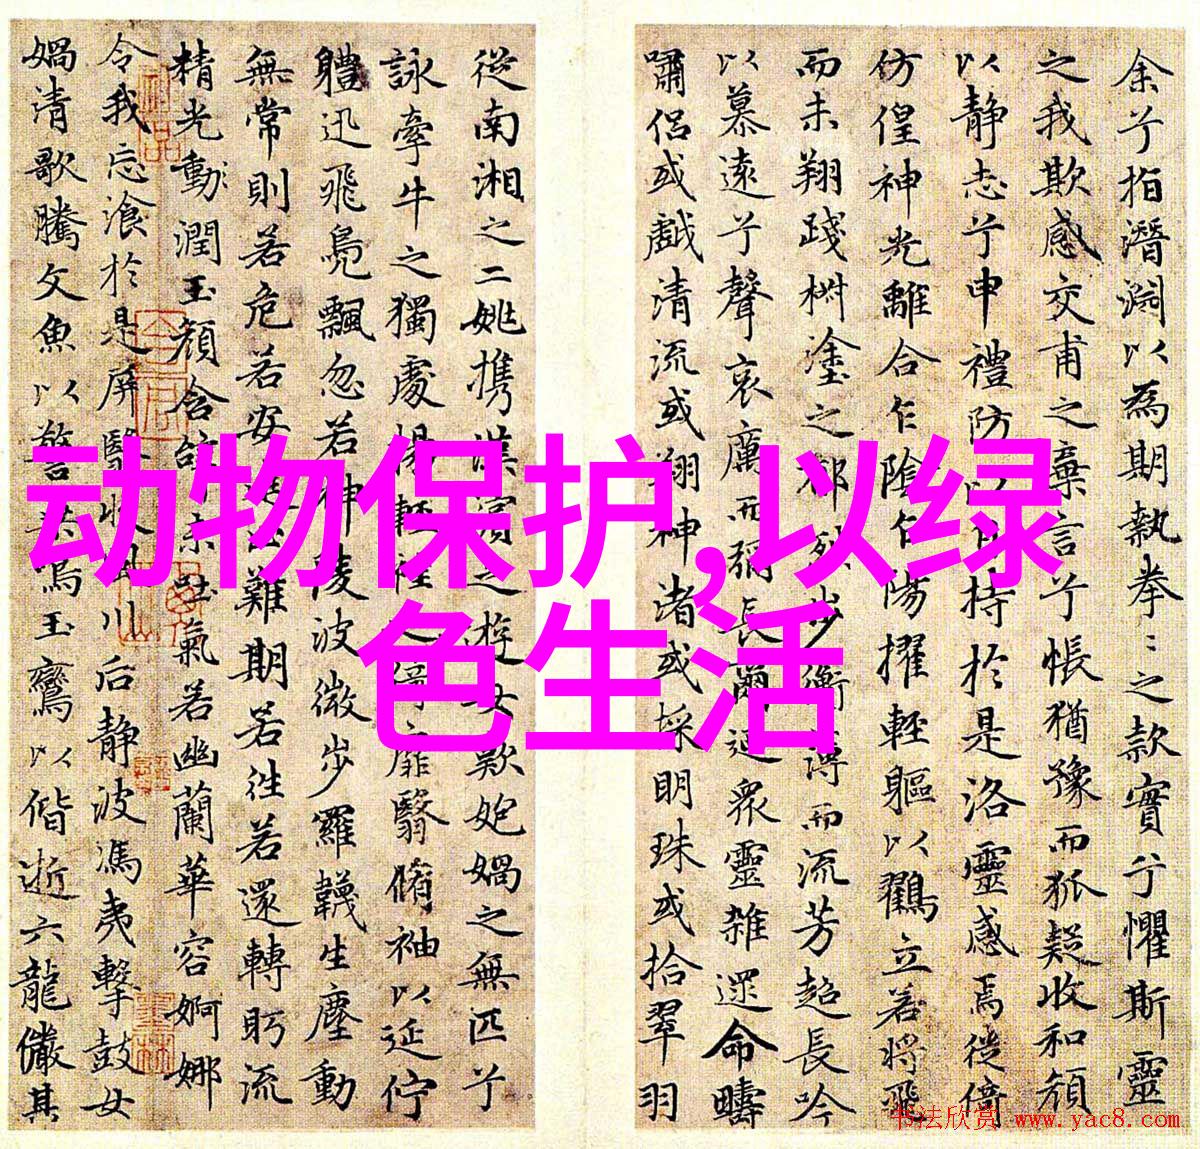 余兮指潛淵以為期執拳〻之款實兮懼斯靈
之我欺感交甫之棄言兮悵猶豫而狐疑收和顏
以靜志兮申禮防以自持於是洛靈感焉徙倚
仿偟神光離合乍陰乍陽擢輕軀以鶴立若將飛
而未翔踐椒塗之郁烈步衡薄而流芳超長吟
以慕遠兮聲哀厲而彌長爾迺眾靈雜遝命疇
嘯侶或戲清流或翔神渚或採明珠或拾翠羽
從南湘之二姚攜漢濱之遊女歎匏媧之無匹兮
詠牽牛之獨處揚輕袿之綺靡翳脩袖以延佇
體迅飛鳧飄忽若神陵波微步羅韈生塵動
無常則若危若安進止難期若往若還轉眄流
精光動潤玉顏含辭未吐氣若幽蘭華容婀娜
令我忘湌於是屏翳收風川后靜波馮夷擊鼓女
媧清歌騰文魚以警乘鳴玉鸞以偕逝六龍儼其
动物保护,以绿
色生活
书法欣赏 www.yac8.com